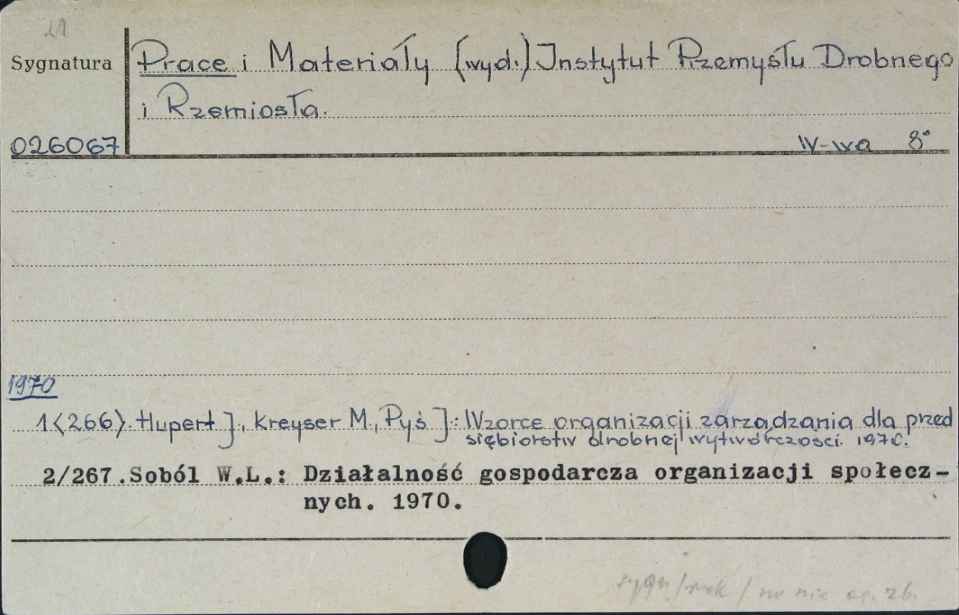 21
Sygnatura
Prace i Materiały (wyd.) Instytut Przemysłu Drobnego
i Rzemiosła.
026067
W-wa 8°
1970
1<266>. Hupert J., Kreyser M., Pyś J.: Wzorce organizacji zarządzania dla przed
siębiorstw drobnej wytwórczości. 1970.
2/267. Soból W.L.: Działalność gospodarcza organizacji społecz-
nych. 1970.
sygn/rok / nr nie